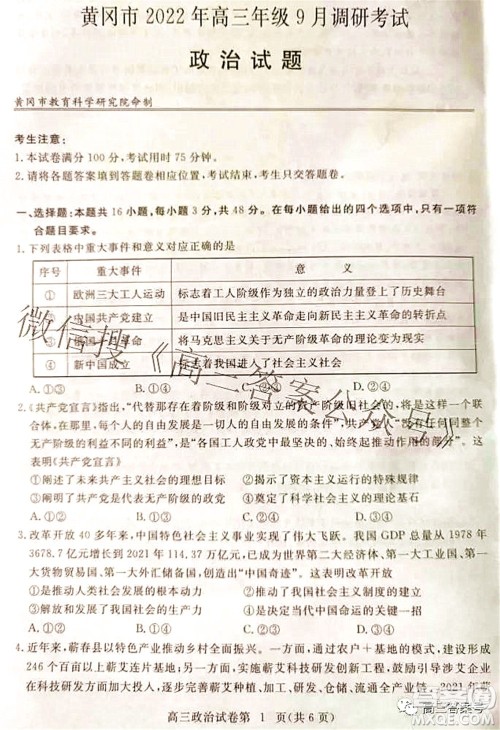 黄冈市2022年高三年级9月调研考试
政治试题
黄冈市教育科学研究院命制
考生注意:
1.本试卷满分100分,考试用时75分钟。
2.请将各题答案填到答题卷相应位置,考试结束,考生只交答题卷。
一、选择题:本题共16小题,每小题3分,共48分。在每小题给出的四个选项中,只有一项符
合题目要求。
1.下列表格中重大事件和意义对应正确的是
序号 重大事件 意 义
① 欧洲三大工人运动 标志着工人阶级作为独立的政治力量登上了历史舞台
② 中国共产党建立 是中国旧民主主义革命走向新民主主义革命的转折点
革命 将马克思主义关于无产阶级革命的理论变为现实
④ 新中国成立 标志着我国进入了社会主义社会
A.①③ B.①④ C.②③ D.②④
2.《共产党宣言》指出,“代替那存在着阶级和阶级对立的资产阶级旧社会的,将是这样一个联
合体,在那里,每个人的自由发展是一切人的自由发展的条件”,共产党人“没有任何同整个
无产阶级的利益不同的利益”,是“各国工人政党中最坚决的、始终起推动作用的部分”。这
表明《共产党宣言》
①阐述了未来共产主义社会的理想 ②揭示了资本主义运行的特殊规律
③阐明了共产党是代表无产阶级的政党 ④奠定了科学社会主义的理论基石
A.①② B.①③ C.②④ D.③④
3.改革开放40多年来,中国特色社会主义事业实现了伟大飞跃。我国GDP总量从1978年
3678.7亿元增长到2021年114.37万亿元,已成为世界第二大经济体、第一大工业国、第一
大货物贸易国、第一大外汇储备国,创造了“中国奇迹”。这表明改革开放
①是推动人类社会发展的根本动力 ②推动了我国社会主义制度的建立
③解放和发展了我国社会的生产力 ④创造了经济发展奇迹
A.①② B.①③ C.②④ D.③④
4.近年来,蕲春县以特色产业推动乡村全面振兴。一方面,通过大力发展基地建设,建成了
246个百亩以上蕲艾连片基地;另一方面,实施蕲艾科技研发创新工程,鼓励引导涉艾企业
开展科技研发创新,逐步完善蕲艾种植、加工、研发、仓储、流通全产业链……2021年蕲
高三政治试卷第 1 页(共6页)
微信搜《高三答案公众号》
高三答案号